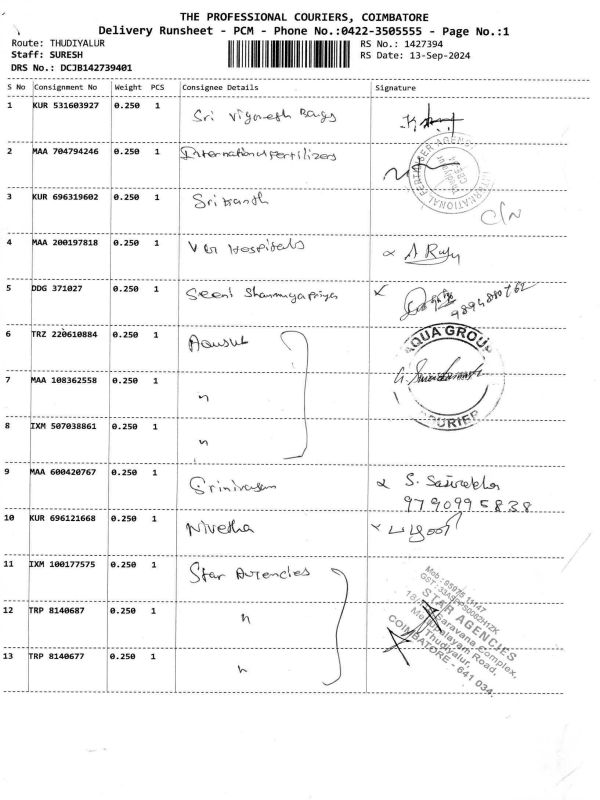 THE PROFESSIONAL COURIERS, COIMBATORE
Delivery Runsheet - PCM - Phone No.:0422-3505555 - Page No.:1
Route: THUDIYALUR
RS No.: 1427394
Staff: SURESH
RS Date: 13-Sep-2024
DRS No.: DCJB142739401
S No Consignment No Weight PCS Consignee Details Signature
1 KUR 531603927 0.250 1 Sri Vignesh Bags
2 MAA 704794246 0.250 1 International Fertilizers
INTERNATIONAL FERTILISER AGENC
3 KUR 696319602 0.250 1 Srikanth C/N
4 MAA 200197818 0.250 1 V Hospitals
5 DDG 371027 0.250 1 Seeni Shanmugapriya
6 TRZ 220610884 0.250 1
AQUA GROUP
COURIER
7 MAA 108362558 0.250 1 "
8 IXM 507038861 0.250 1 "
9 MAA 600420767 0.250 1 Srinivasan
9790995838
10 KUR 696121668 0.250 1 Nivetha
11 IXM 100177575 0.250 1 Star Agencies
12 TRP 8140687 0.250 1 "
13 TRP 8140677 0.250 1 "
STAR AGENCIES
Saravana Complex,
Mettupalayam Road,
Thudiyalur,
COIMBATORE - 641 034.